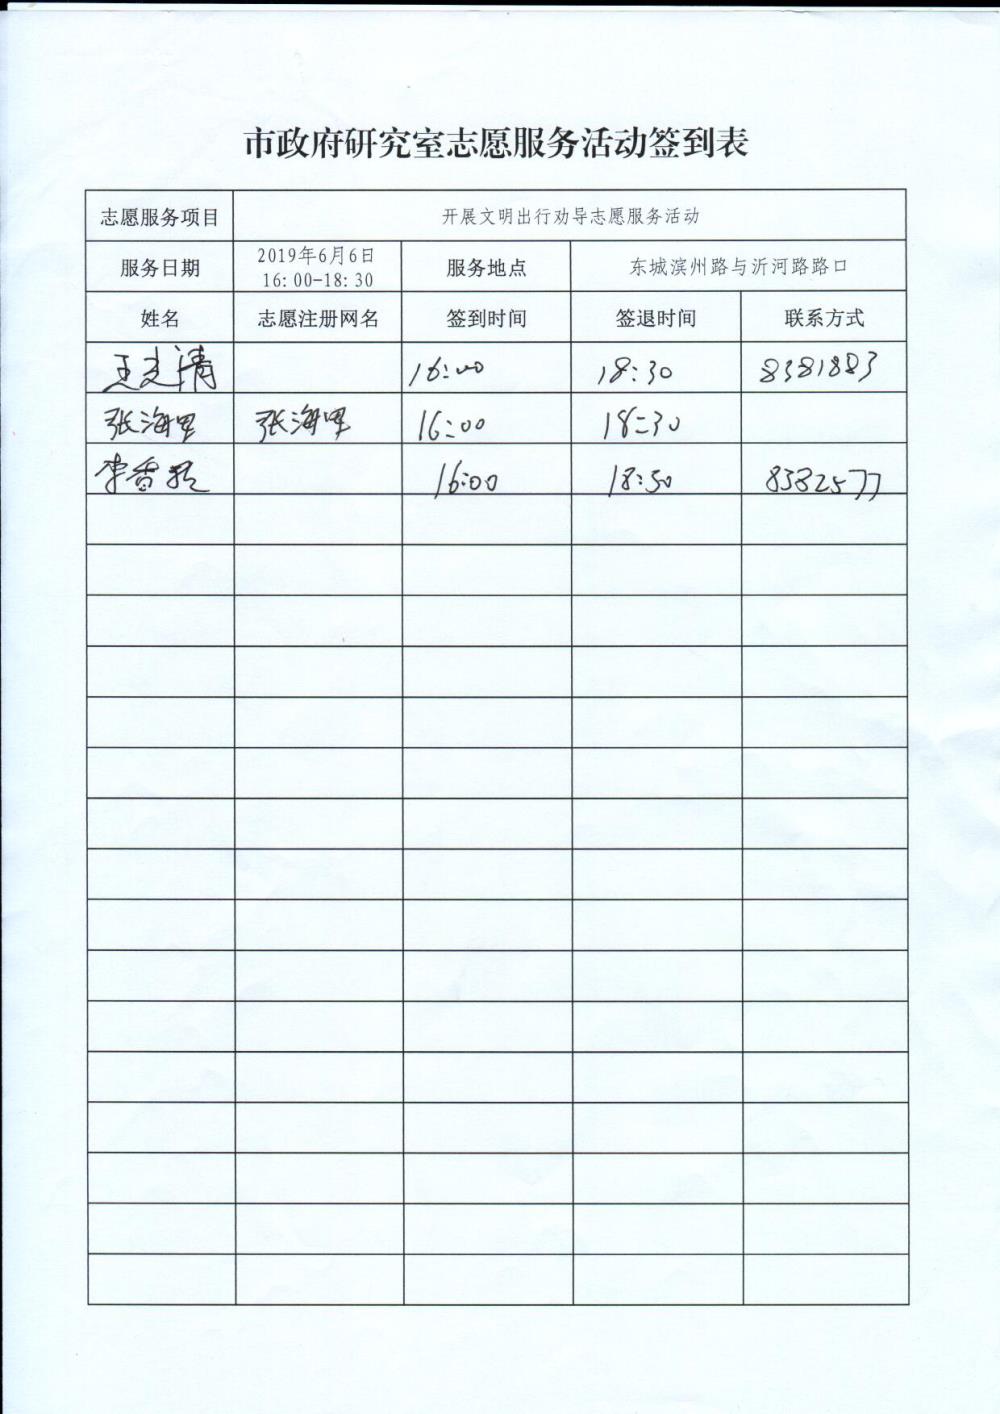 市政府研究室志愿服务活动签到表
志愿服务项目 开展文明出行劝导志愿服务活动
服务日期 2019年6月6日 16:00-18:30 服务地点 东城滨州路与沂河路路口
姓名 志愿注册网名 签到时间 签退时间 联系方式
16:00 18:30 8381883
张海 张海 16:00 18:30
李香 16:00 18:30 8382577